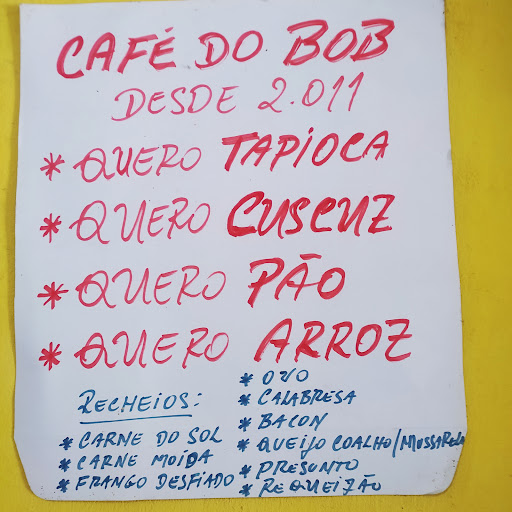 CAFÉ DO BOB
DESDE 2.011
* QUERO TAPIOCA
* QUERO CUSCUZ
* QUERO PÃO
* QUERO ARROZ
RECHEIOS:
* CARNE DO SOL
* CARNE MOIDA
* FRANGO DESFIADO
* OVO
* CALABRESA
* BACON
* QUEIJO COALHO/MUSSARELA
* PRESUNTO
* REQUEIJÃO